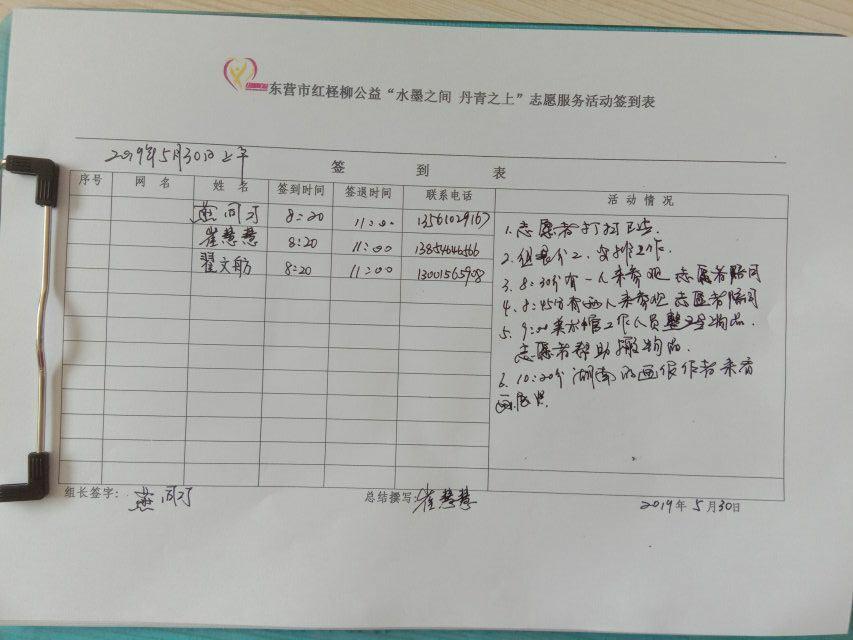 东营市红柽柳公益“水墨之间 丹青之上”志愿服务活动签到表
2019年5月30日上午
签 到 表
序号 网名 姓名 签到时间 签退时间 联系电话 活动情况
燕同习 8:20 11:00 13561029167
崔慧慧 8:20 11:00
翟文舫 8:20 11:00 13001565908
1. 志愿者打扫卫生.
2. 组长分工. 安排工作.
3. 8:30分有一人来参观 志愿者陪同
4. 8:45分有两人来参观 志愿者陪同
5. 9:00美术馆工作人员整理物品.
志愿者帮助搬物品.
6. 10:20分 湖南的画展作者来看
画展
组长签字: 燕同习 总结撰写: 崔慧慧 2019年5月30日